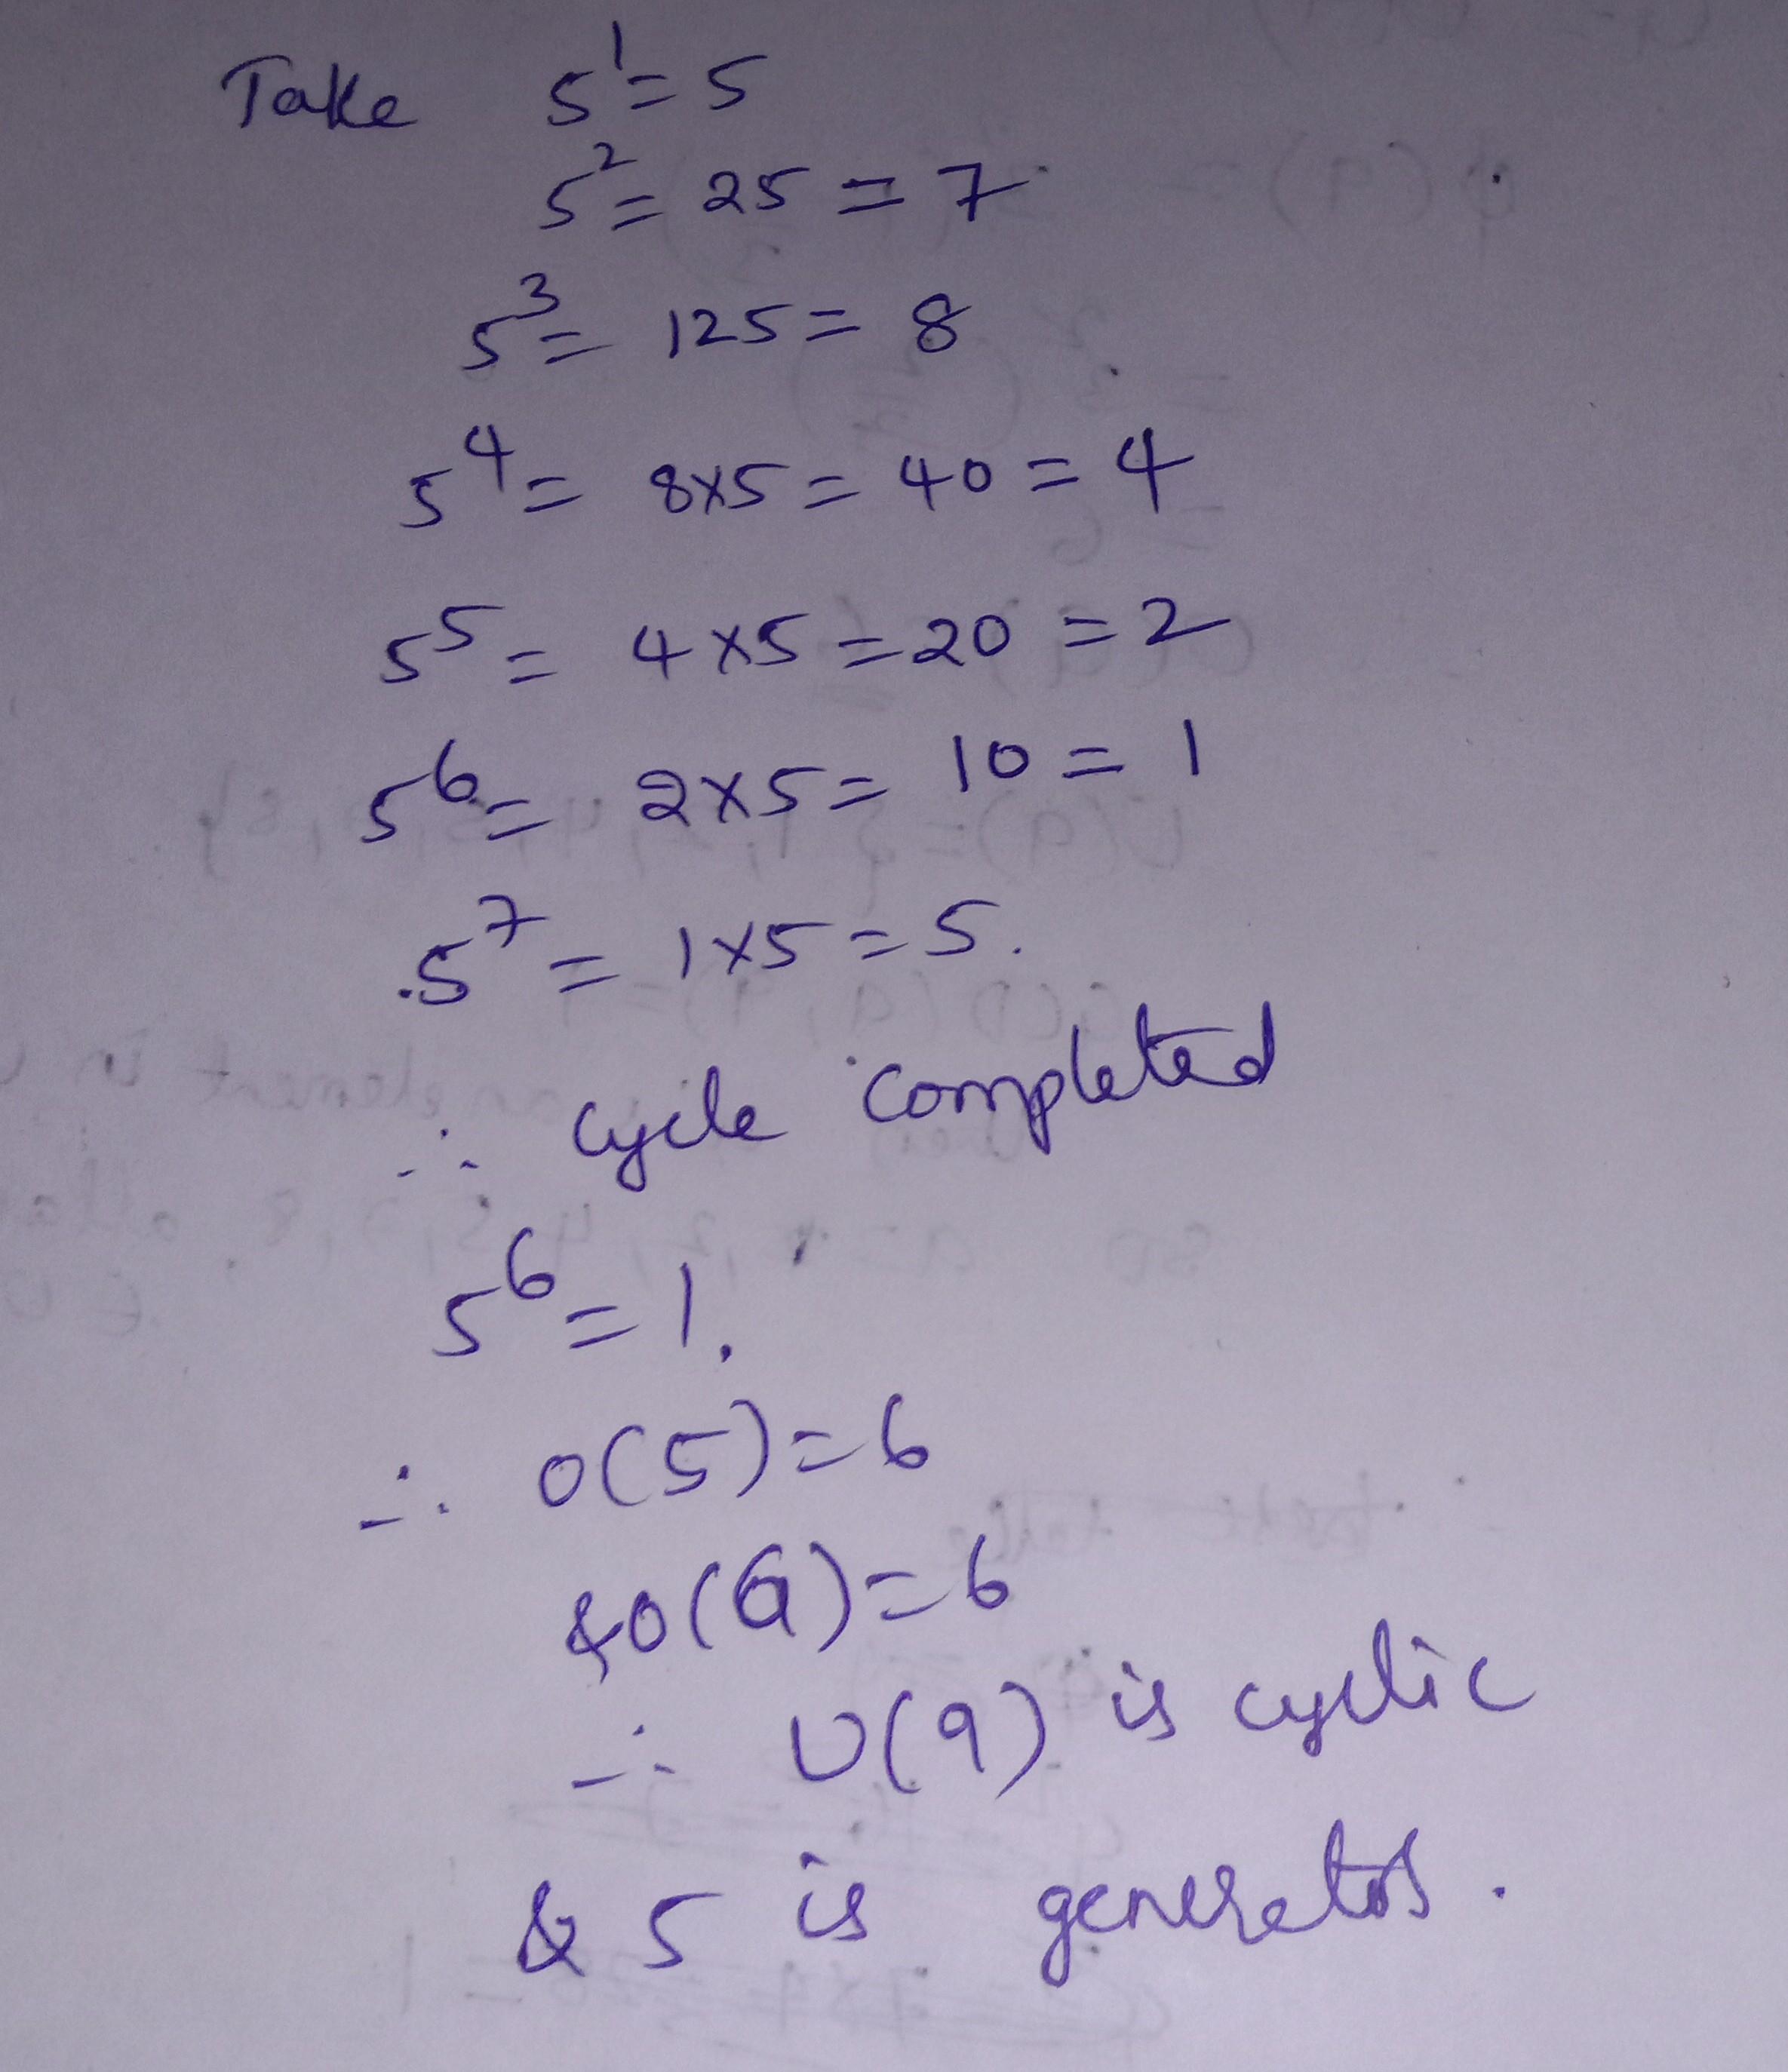 Take 5¹ = 5
5² = 25 = 7
5³ = 125 = 8
5⁴ = 8×5 = 40 = 4
5⁵ = 4×5 = 20 = 2
5⁶ = 2×5 = 10 = 1
5⁷ = 1×5 = 5.
∴ cycle completed
5⁶ = 1.
∴ O(5) = 6
& O(G) = 6
∴ U(9) is cyclic
& 5 is generator.